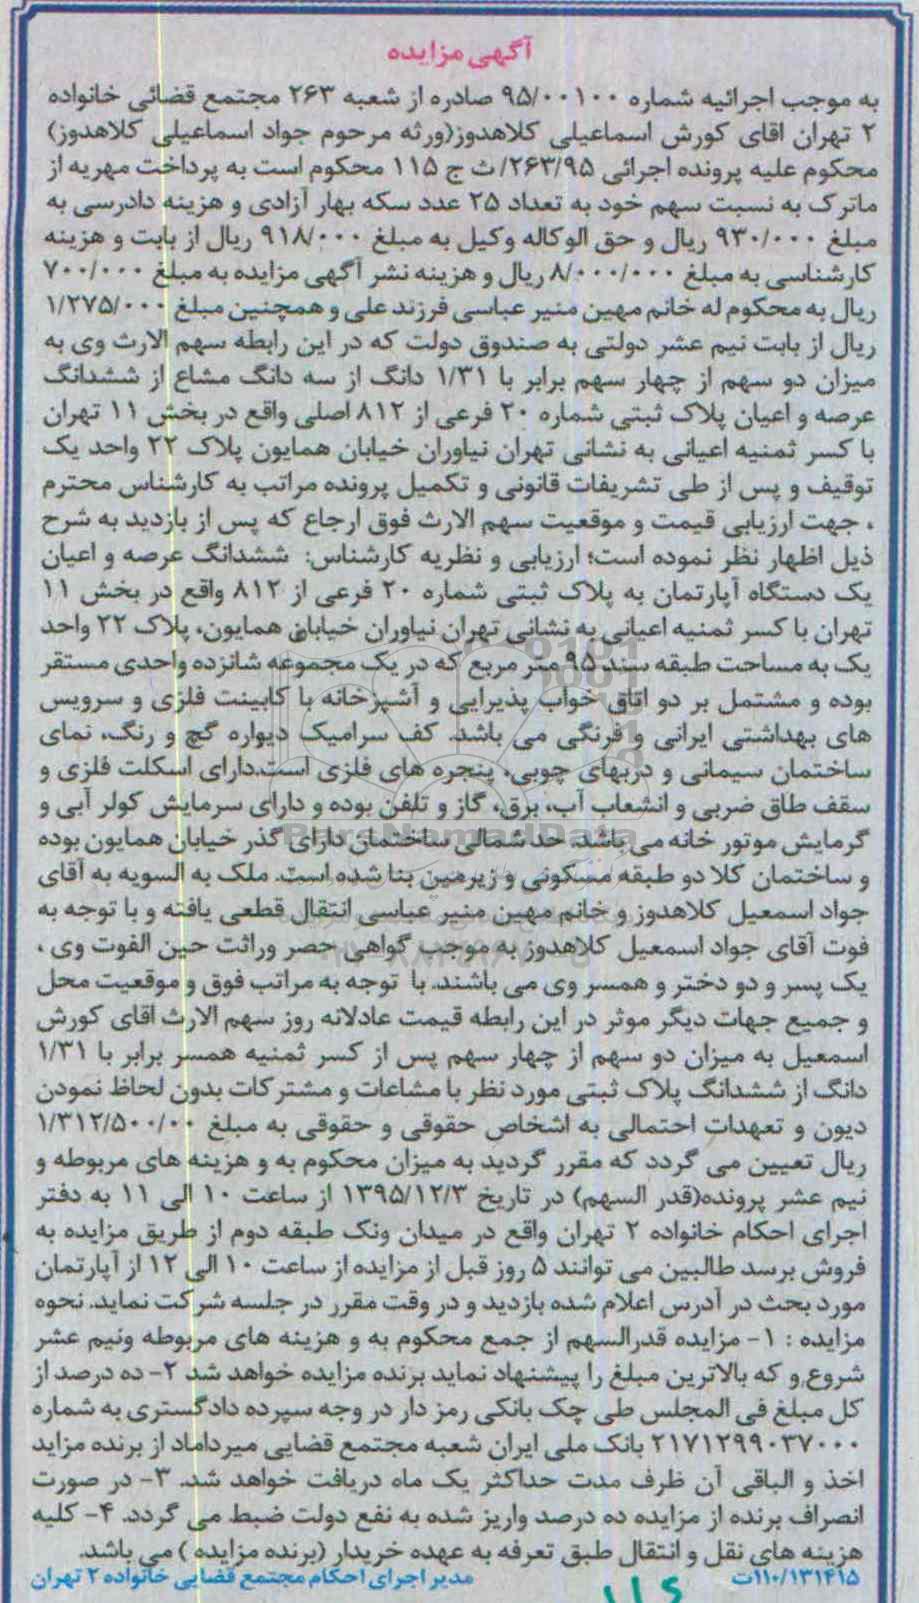 آگهی مزایده
به موجب اجرائیه شماره ۹۵/۰۰۱۰۰ صادره از شعبه ۲۶۳ مجتمع قضائی خانواده
۲ تهران اقای کورش اسماعیلی کلاهدوز(ورثه مرحوم جواد اسماعیلی کلاهدوز)
محکوم علیه پرونده اجرائی ۲۶۳/۹۵/ ث ج ۱۱۵ محکوم است به پرداخت مهریه از
ماترک به نسبت سهم خود به تعداد ۲۵ عدد سکه بهار آزادی و هزینه دادرسی به
مبلغ ۹۳۰/۰۰۰ ریال و حق الوکاله وکیل به مبلغ ۹۱۸/۰۰۰ ریال از بابت و هزینه
کارشناسی به مبلغ ۸/۰۰۰/۰۰۰ ریال و هزینه نشر آگهی مزایده به مبلغ ۷۰۰/۰۰۰
ریال به محکوم له خانم مهین منیر عباسی فرزند علی و همچنین مبلغ ۱/۲۷۵/۰۰۰
ریال از بابت نیم عشر دولتی به صندوق دولت که در این رابطه سهم الارث وی به
میزان دو سهم از چهار سهم برابر با ۱/۳۱ دانگ از سه دانگ مشاع از ششدانگ
عرصه و اعیان پلاک ثبتی شماره ۲۰ فرعی از ۸۱۲ اصلی واقع در بخش ۱۱ تهران
با کسر ثمنیه اعیانی به نشانی تهران نیاوران خیابان همایون پلاک ۲۲ واحد یک
توقیف و پس از طی تشریفات قانونی و تکمیل پرونده مراتب به کارشناس محترم
، جهت ارزیابی قیمت و موقعیت سهم الارث فوق ارجاع که پس از بازدید به شرح
ذیل اظهار نظر نموده است؛ ارزیابی و نظریه کارشناس: ششدانگ عرصه و اعیان
یک دستگاه آپارتمان به پلاک ثبتی شماره ۲۰ فرعی از ۸۱۲ واقع در بخش ۱۱
تهران با کسر ثمنیه اعیانی به نشانی تهران نیاوران خیابان همایون، پلاک ۲۲ واحد
یک به مساحت طبقه سند ۹۵ متر مربع که در یک مجموعه شانزده واحدی مستقر
بوده و مشتمل بر دو اتاق خواب پذیرایی و آشپزخانه با کابینت فلزی و سرویس
های بهداشتی ایرانی و فرنگی می باشد. کف سرامیک دیواره گچ و رنگ، نمای
ساختمان سیمانی و دربهای چوبی، پنجره های فلزی است.دارای اسکلت فلزی و
سقف طاق ضربی و انشعاب آب، برق، گاز و تلفن بوده و دارای سرمایش کولر آبی و
گرمایش موتور خانه می باشد. حد شمالی ساختمان دارای گذر خیابان همایون بوده
و ساختمان کلا دو طبقه مسکونی و زیرمین بنا شده است. ملک به السویه به آقای
جواد اسمعیل کلاهدوز و خانم مهین منیر عباسی انتقال قطعی یافته و با توجه به
فوت آقای جواد اسمعیل کلاهدوز به موجب گواهی حصر وراثت حین الفوت وی ،
یک پسر و دو دختر و همسر وی می باشند. با توجه به مراتب فوق و موقعیت محل
و جمیع جهات دیگر موثر در این رابطه قیمت عادلانه روز سهم الارث اقای کورش
اسمعیل به میزان دو سهم از چهار سهم پس از کسر ثمنیه همسر برابر با ۱/۳۱
دانگ از ششدانگ پلاک ثبتی مورد نظر با مشاعات و مشترکات بدون لحاظ نمودن
دیون و تعهدات احتمالی به اشخاص حقوقی و حقوقی به مبلغ ۱/۳۱۲/۵۰۰/۰۰
ریال تعیین می گردد که مقرر گردید به میزان محکوم به و هزینه های مربوطه و
نیم عشر پرونده(قدر السهم) در تاریخ ۱۳۹۵/۱۲/۳ از ساعت ۱۰ الی ۱۱ به دفتر
اجرای احکام خانواده ۲ تهران واقع در میدان ونک طبقه دوم از طریق مزایده به
فروش برسد طالبین می توانند ۵ روز قبل از مزایده از ساعت ۱۰ الی ۱۲ از آپارتمان
مورد بحث در آدرس اعلام شده بازدید و در وقت مقرر در جلسه شرکت نماید. نحوه
مزایده : ۱- مزایده قدرالسهم از جمع محکوم به و هزینه های مربوطه ونیم عشر
شروع,و که بالاترین مبلغ را پیشنهاد نماید برنده مزایده خواهد شد ۲- ده درصد از
کل مبلغ فی المجلس طی چک بانکی رمز دار در وجه سپرده دادگستری به شماره
۲۱۷۱۲۹۹۰۳۷۰۰۰ بانک ملی ایران شعبه مجتمع قضایی میرداماد از برنده مزاید
اخذ و الباقی آن ظرف مدت حداکثر یک ماه دریافت خواهد شد. ۳- در صورت
انصراف برنده از مزایده ده درصد واریز شده به نفع دولت ضبط می گردد. ۴- کلیه
هزینه های نقل و انتقال طبق تعرفه به عهده خریدار (برنده مزایده ) می باشد.
۱۱۰/۱۳۱۴۱۵ت مدیر اجرای احکام مجتمع قضایی خانواده ۲ تهران
ParsNamadData